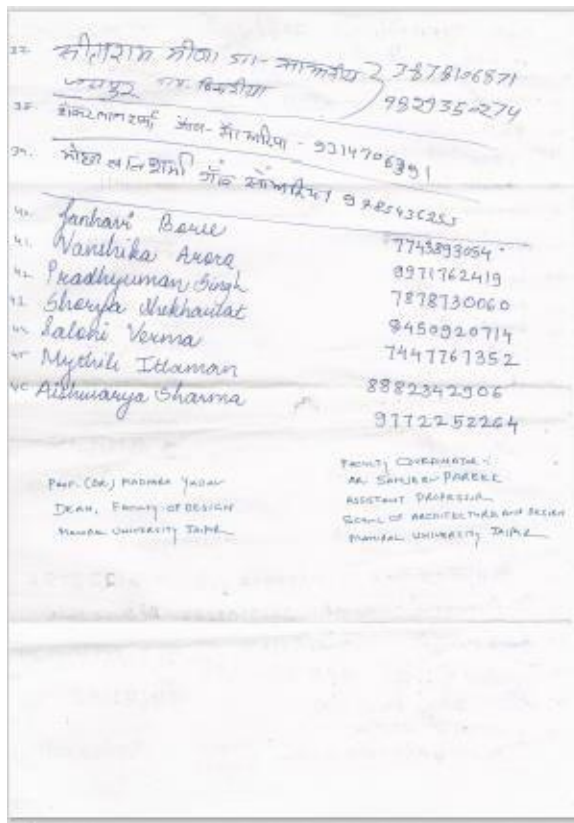 37. सीताराम मीणा 3878106871
जयपुर 9829350274
38. 9314706391
39. शर्मा 9785436255
40. Janhavi Borse 7743893054
41. Vanshika Arora 9971762419
42. Pradhyuman Singh 7878730060
43. Shorya Shekhawat 8450920714
44. Saloni Verma 7447767352
45 Mythili Ittaman 8882342906
46 Aishwarya Sharma 9772252264
PROF. (DR.) MADHURA YADAV
DEAN, FACULTY OF DESIGN
MANIPAL UNIVERSITY JAIPUR
FACULTY COORDINATOR :
AR. SANJEEV PAREEK
ASSISTANT PROFESSOR
SCHOOL OF ARCHITECTURE AND DESIGN
MANIPAL UNIVERSITY JAIPUR